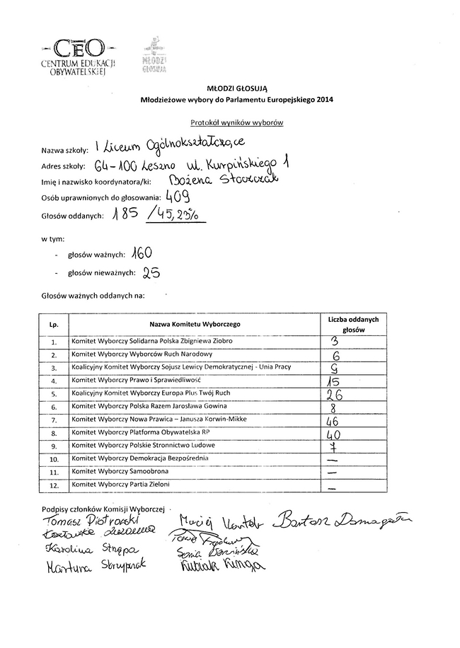 CEO
CENTRUM EDUKACJI
OBYWATELSKIEJ
MŁODZI
GŁOSUJĄ
MŁODZI GŁOSUJĄ
Młodzieżowe wybory do Parlamentu Europejskiego 2014
Protokół wyników wyborów
Nazwa szkoły: I Liceum Ogólnokształcące
Adres szkoły: 64-100 Leszno ul. Kurpińskiego 1
Imię i nazwisko koordynatora/ki: Bożena
Osób uprawnionych do głosowania: 409
Głosów oddanych: 185 /45,23%
w tym:
- głosów ważnych: 160
- głosów nieważnych: 25
Głosów ważnych oddanych na:
Lp. Nazwa Komitetu Wyborczego Liczba oddanych głosów
1. Komitet Wyborczy Solidarna Polska Zbigniewa Ziobro 3
2. Komitet Wyborczy Wyborców Ruch Narodowy 6
3. Koalicyjny Komitet Wyborczy Sojusz Lewicy Demokratycznej - Unia Pracy 9
4. Komitet Wyborczy Prawo i Sprawiedliwość 15
5. Koalicyjny Komitet Wyborczy Europa Plus Twój Ruch 26
6. Komitet Wyborczy Polska Razem Jarosława Gowina 8
7. Komitet Wyborczy Nowa Prawica – Janusza Korwin-Mikke 46
8. Komitet Wyborczy Platforma Obywatelska RP 40
9. Komitet Wyborczy Polskie Stronnictwo Ludowe 7
10. Komitet Wyborczy Demokracja Bezpośrednia —
11. Komitet Wyborczy Samoobrona —
12. Komitet Wyborczy Partia Zieloni —
Podpisy członków Komisji Wyborczej
Tomasz Piotrowski Maciej Bartosz
Karolina Strępa
Martyna Skrzypczak Kubiak Kinga